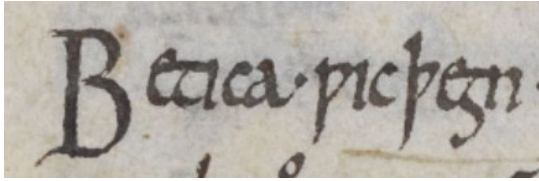 Betica · ƿicþegn ·